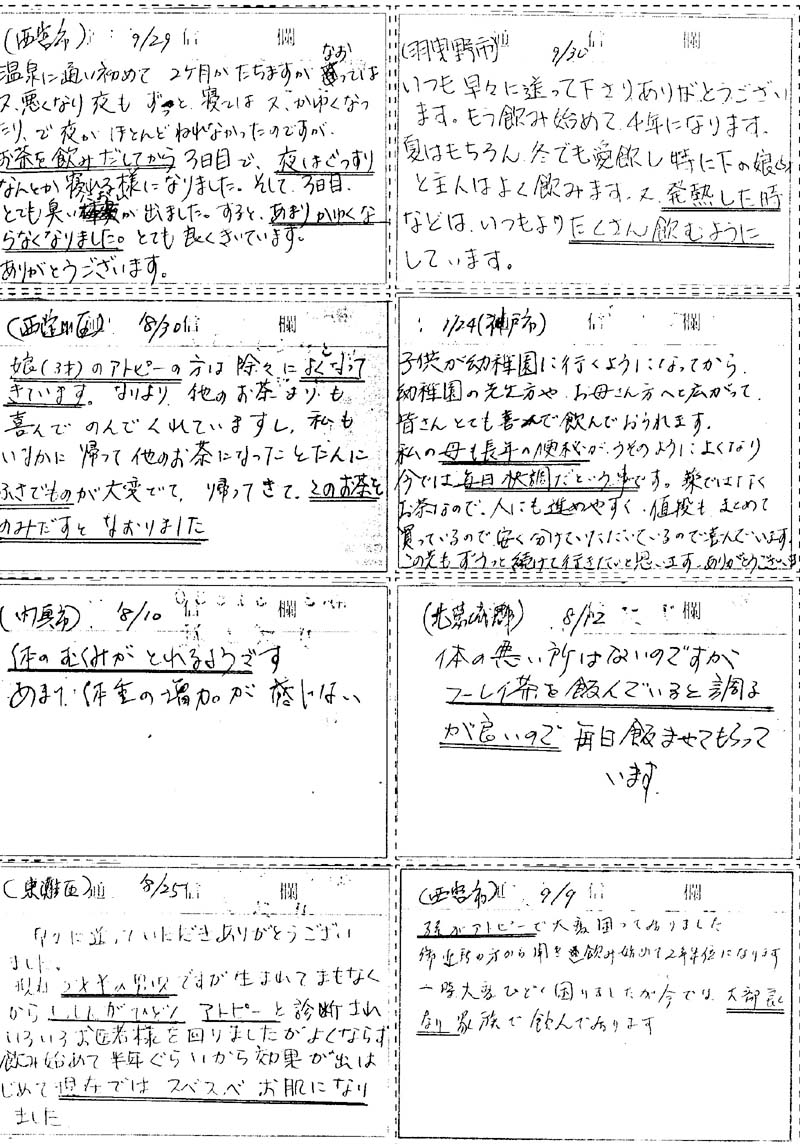 (西宮市) 9/29 信 欄
温泉に通い初めて 2ヶ月がたちますが なおっては
又、悪くなり夜も ずーっと、寝ては又、かゆくなっ
たり、で夜が ほとんどねれなかったのですが、
お茶を飲みだしてから 3日目で、夜はぐっすり
なんとか寝れる様になりました。そして、3日目、
とても臭い が出ました。すると、あまりかゆくな
らなくなりました。とても良くきいています。
ありがとうございます。
(羽曳野市) 通 9/30 信 欄
いつも早々に送って下さりありがとうござい
ます。もう飲み始めて、4年になります。
夏はもちろん、冬でも愛飲し特に下の娘
と主人はよく飲みます。又、発熱した時
などは、いつもよりたくさん飲むように
しています。
(西淀川区) 8/30 信 欄
娘(3才)のアトピーの方は除々によくなって
きています。なりより、他のお茶よりも
喜んでのんでくれていますし、私も
いなかに帰って他のお茶になったとたんに
ふきでものが大変でて、帰ってきて、このお茶を
のみだすと なおりました
1/24(神戸市) 信 欄
子供が幼稚園に行くようになってから、
幼稚園の先生方や、お母さん方へと広がって、
皆さんとても喜んで飲んでおられます。
私の母も長年の便秘が、うそのようによくなり
今では毎日快調だという事です。薬ではなく
お茶なので、人にも進めやすく、値段も、まとめて
買っているので安く分けていただいているので喜んでいます。
この先もずうっと続けて行きたいと思います。ありがとうござい
(門真市) 8/10 信 欄
体のむくみがとれるようです
あまり体重の増加が 感じない
(北葛城郡) 8/12 欄
体の悪い所はないのですが
フーレイ茶を飲んでいると調子
が良いので 毎日飲ませてもらって
います。
(東灘区) 通 8/25 信 欄
早々に送っていただきありがとうござい
ました。
現在 男児ですが生まれてまもなく
からしっしんがひどく アトピーと診断され
いろいろお医者様を回りましたがよくならず
飲み始めて半年ぐらいから効果が出は
じめて現在ではスベスベお肌になり
ました
(西宮市) 通 9/9 信 欄
孫がアトピーで大変困っておりました
御近所の方から聞き飲み始めて2年半位になります
一時大変ひどく困りましたが今では、大部良く
なり家族で飲んでおります